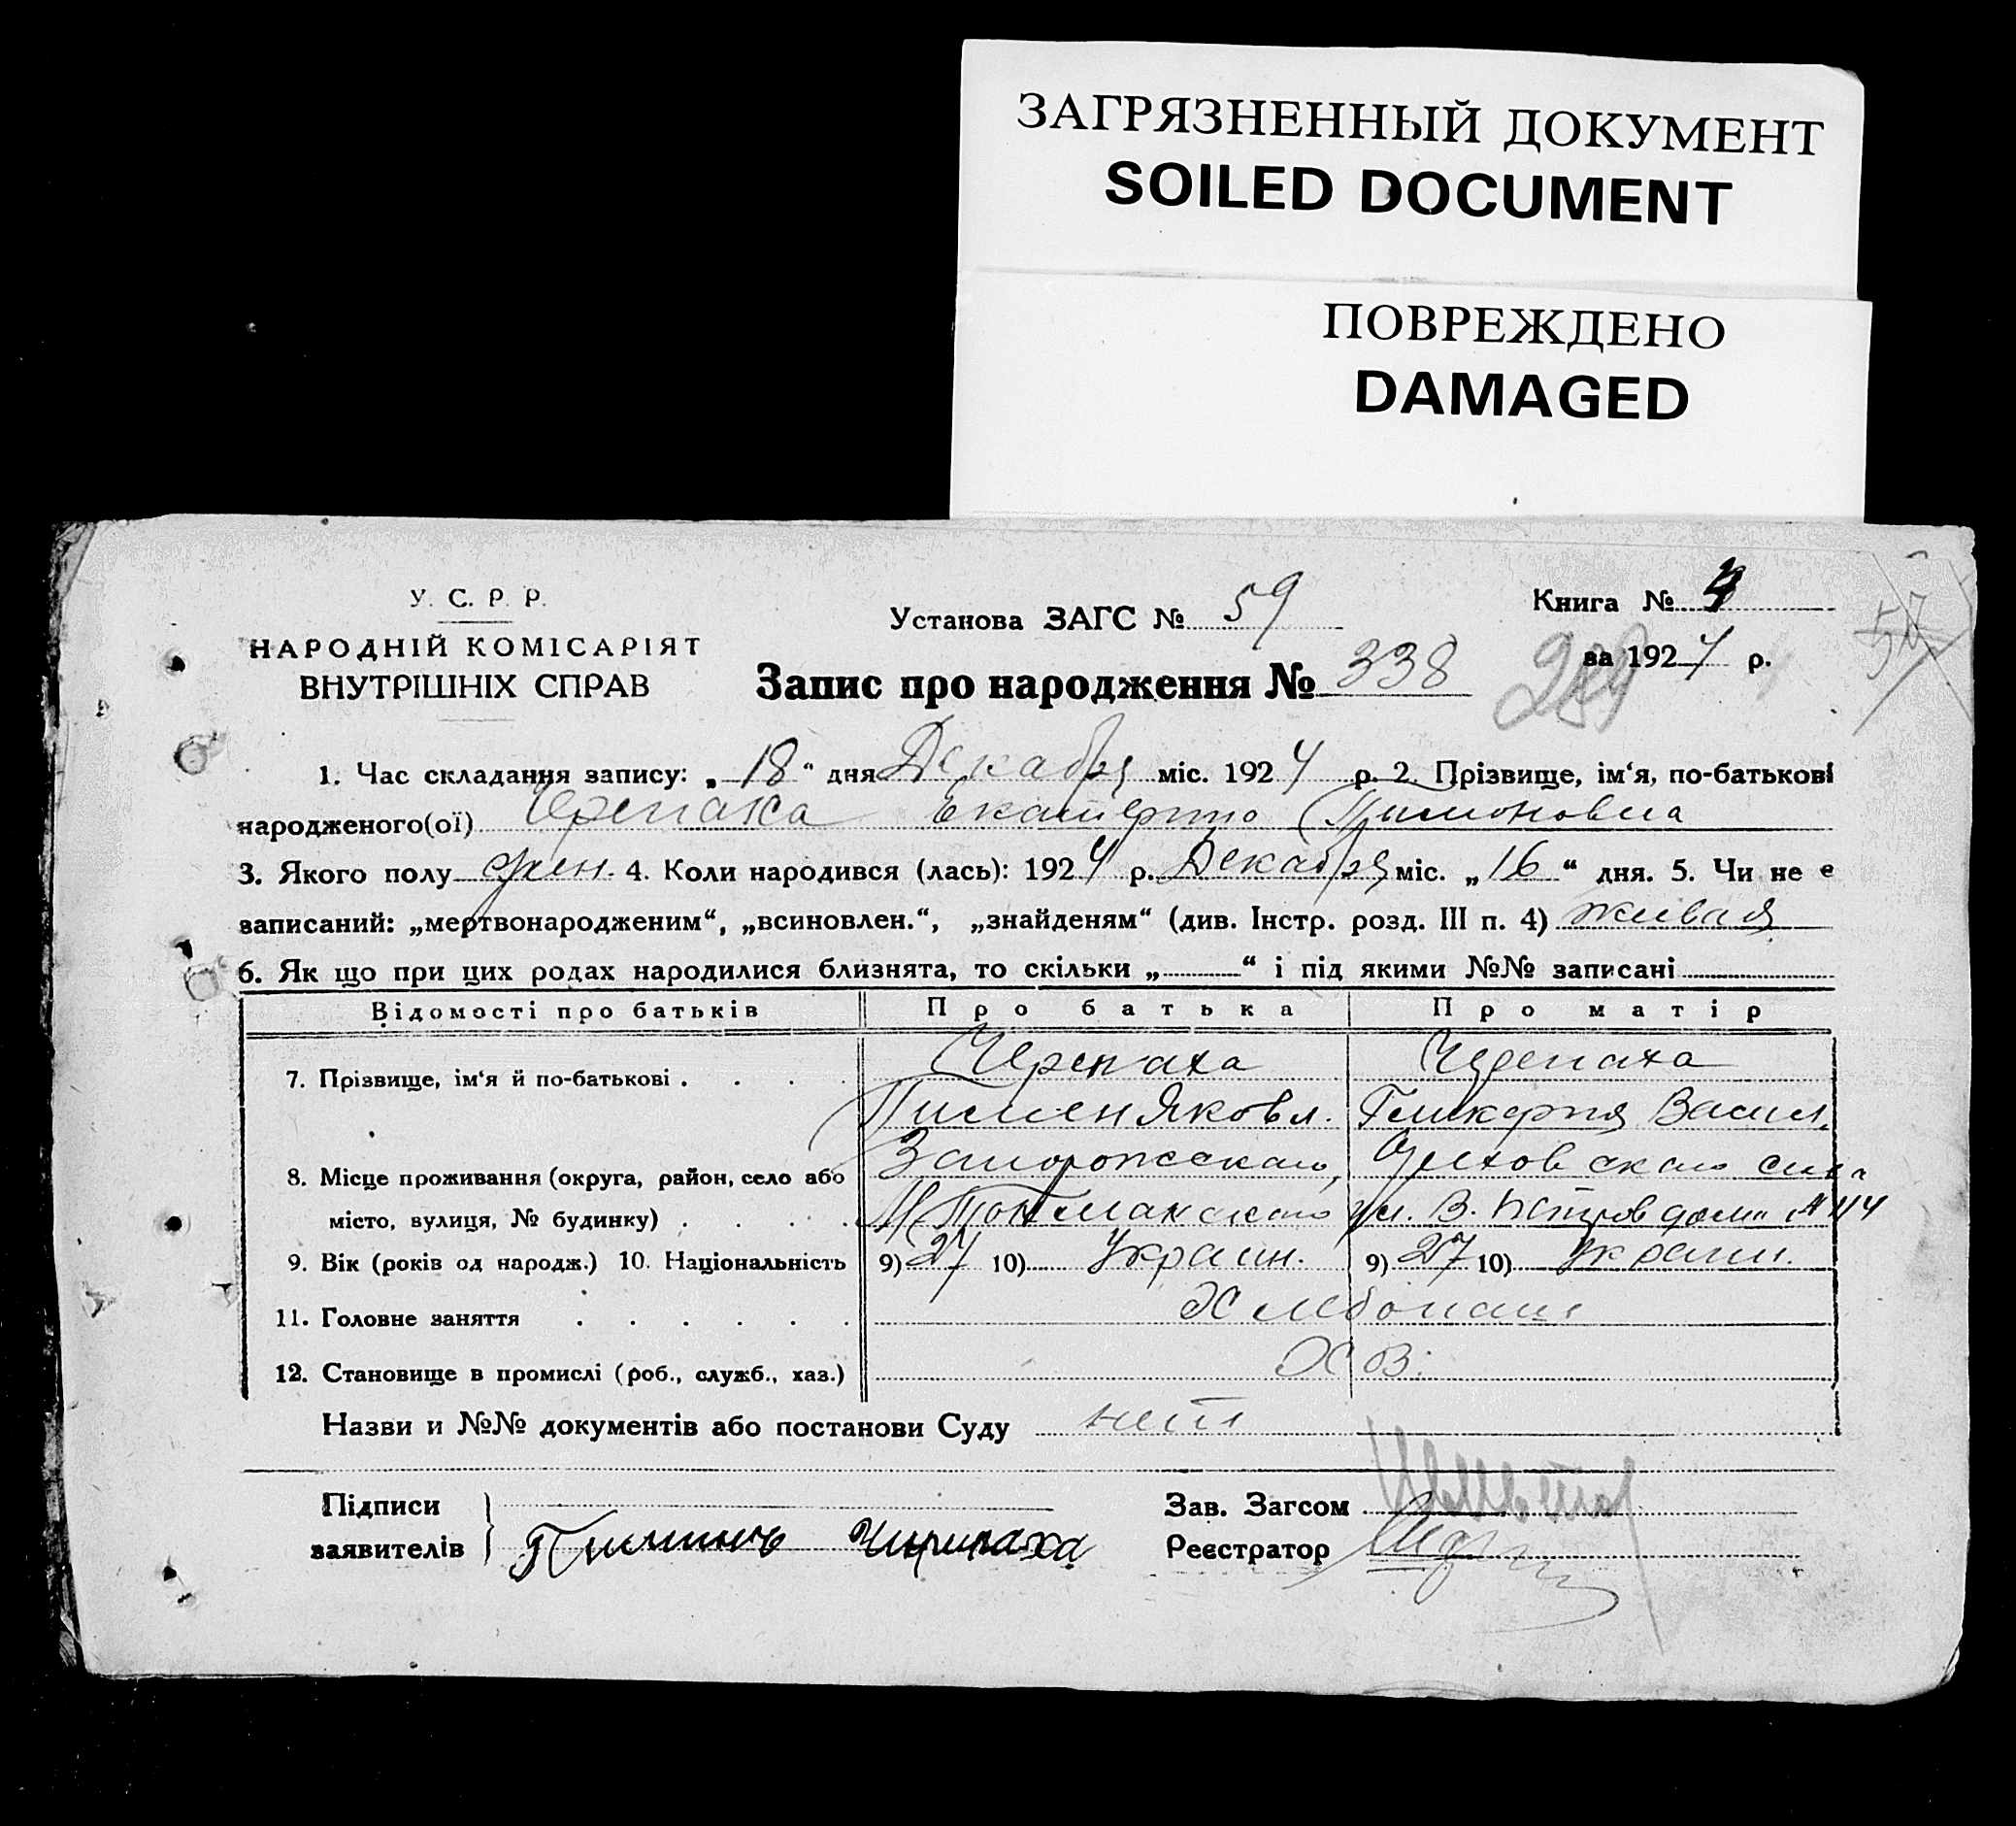 ЗАГРЯЗНЕННЫЙ ДОКУМЕНТ
SOILED DOCUMENT
ПОВРЕЖДЕНО
DAMAGED
У. С. Р. Р.
НАРОДНІЙ КОМІСАРІЯТ
ВНУТРІШНІХ СПРАВ
Установа ЗАГС № 59
Книга № 4
за 1924 р.
Запис про народження № 338
1. Час складання запису: „18“ дня Декабря міс. 1924 р. 2. Прізвище, ім‘я, по-батькові
народженого(ої) Черепаха Екатерина Пимоновна
3. Якого полу жен. 4. Коли народився (лась): 1924 р. Декабря міс. „16“ дня. 5. Чи не є
записаний: „мертвонародженим“, „всиновлен.“, „знайденям“ (див. Інстр. розд. III п. 4) живая
6. Як що при цих родах народилися близнята, то скільки „ “ і під якими №№ записані
Відомості про батьків Про батька Про матір
7. Прізвище, ім‘я й по-батькові . . . . Черепаха Черепаха
Пимен Яковл. Гликерия Васил.
8. Місце проживання (округа, район, село або Запорожского,
місто, вулиця, № будинку) . . . . ул. В.
9. Вік (років од народж.) 10. Національність 9) 27 10) Украин. 9) 27 10) Украин.
11. Головне заняття . . . . . . Хлебопаш
12. Становище в промислі (роб., служб., хаз.) Хоз.
Назви и №№ документів або постанови Суду нет
Підписи
заявителів
Пиминъ Чирипаха
Зав. Загсом
Реєстратор